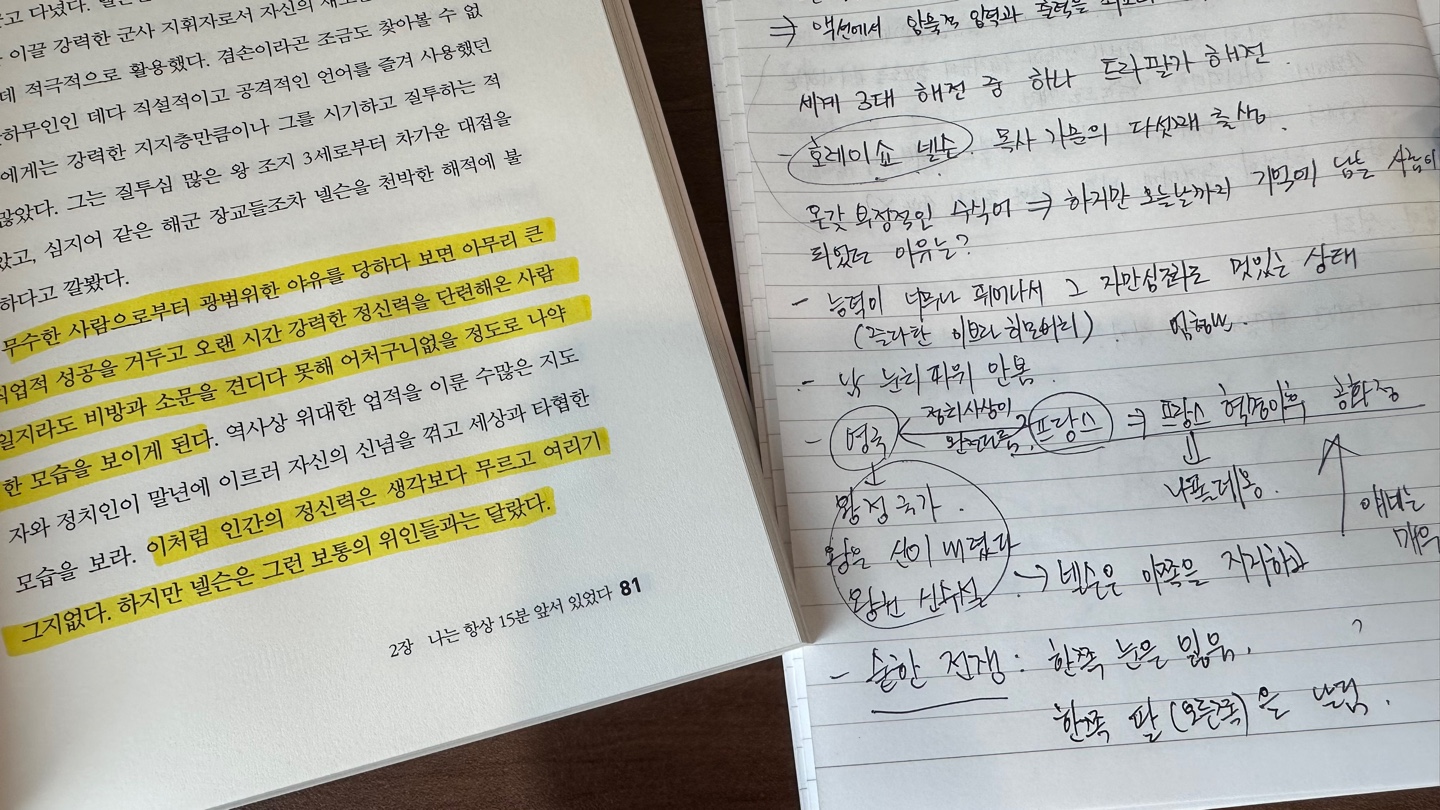 고 다녔다.
이끌 강력한 군사 지휘자로서 자신의
데 적극적으로 활용했다. 겸손이라곤 조금도 찾아볼 수 없
하무인인 데다 직설적이고 공격적인 언어를 즐겨 사용했던
에게는 강력한 지지층만큼이나 그를 시기하고 질투하는 적
많았다. 그는 질투심 많은 왕 조지 3세로부터 차가운 대접을
았고, 심지어 같은 해군 장교들조차 넬슨을 천박한 해적에 불
하다고 깔봤다.
무수한 사람으로부터 광범위한 야유를 당하다 보면 아무리 큰
직업적 성공을 거두고 오랜 시간 강력한 정신력을 단련해온 사람
일지라도 비방과 소문을 견디다 못해 어처구니없을 정도로 나약
한 모습을 보이게 된다. 역사상 위대한 업적을 이룬 수많은 지도
자와 정치인이 말년에 이르러 자신의 신념을 꺾고 세상과 타협한
모습을 보라. 이처럼 인간의 정신력은 생각보다 무르고 여리기
그지없다. 하지만 넬슨은 그런 보통의 위인들과는 달랐다.
2장 나는 항상 15분 앞서 있었다 81
⇒ 액션에서 암묵적 입력과 출력을
세계 3대 해전 중 하나 트라팔가 해전.
- 호레이쇼 넬슨. 목사 가문의 다섯째 출생.
온갖 부정적인 수식어 ⇒ 하지만 오늘날까지 기억에 남는 사람이
되었던 이유는?
- 능력이 너무나 뛰어나서 그 자만심조차도 멋있는 상태
(즐라탄 이브라히모비치)
- 남 눈치 따위 안봄.
- 영국 정치사상이 완전다름. 프랑스 ⇒ 프랑스 혁명이후 공화정
나폴레옹.
얘네는
매우
왕정국가.
왕은 신이 내렸다
왕권 신수설 → 넬슨은 이쪽을 지지하고
- 숱한 전쟁 : 한쪽 눈을 잃음.
한쪽 팔(오른쪽)을 날림.